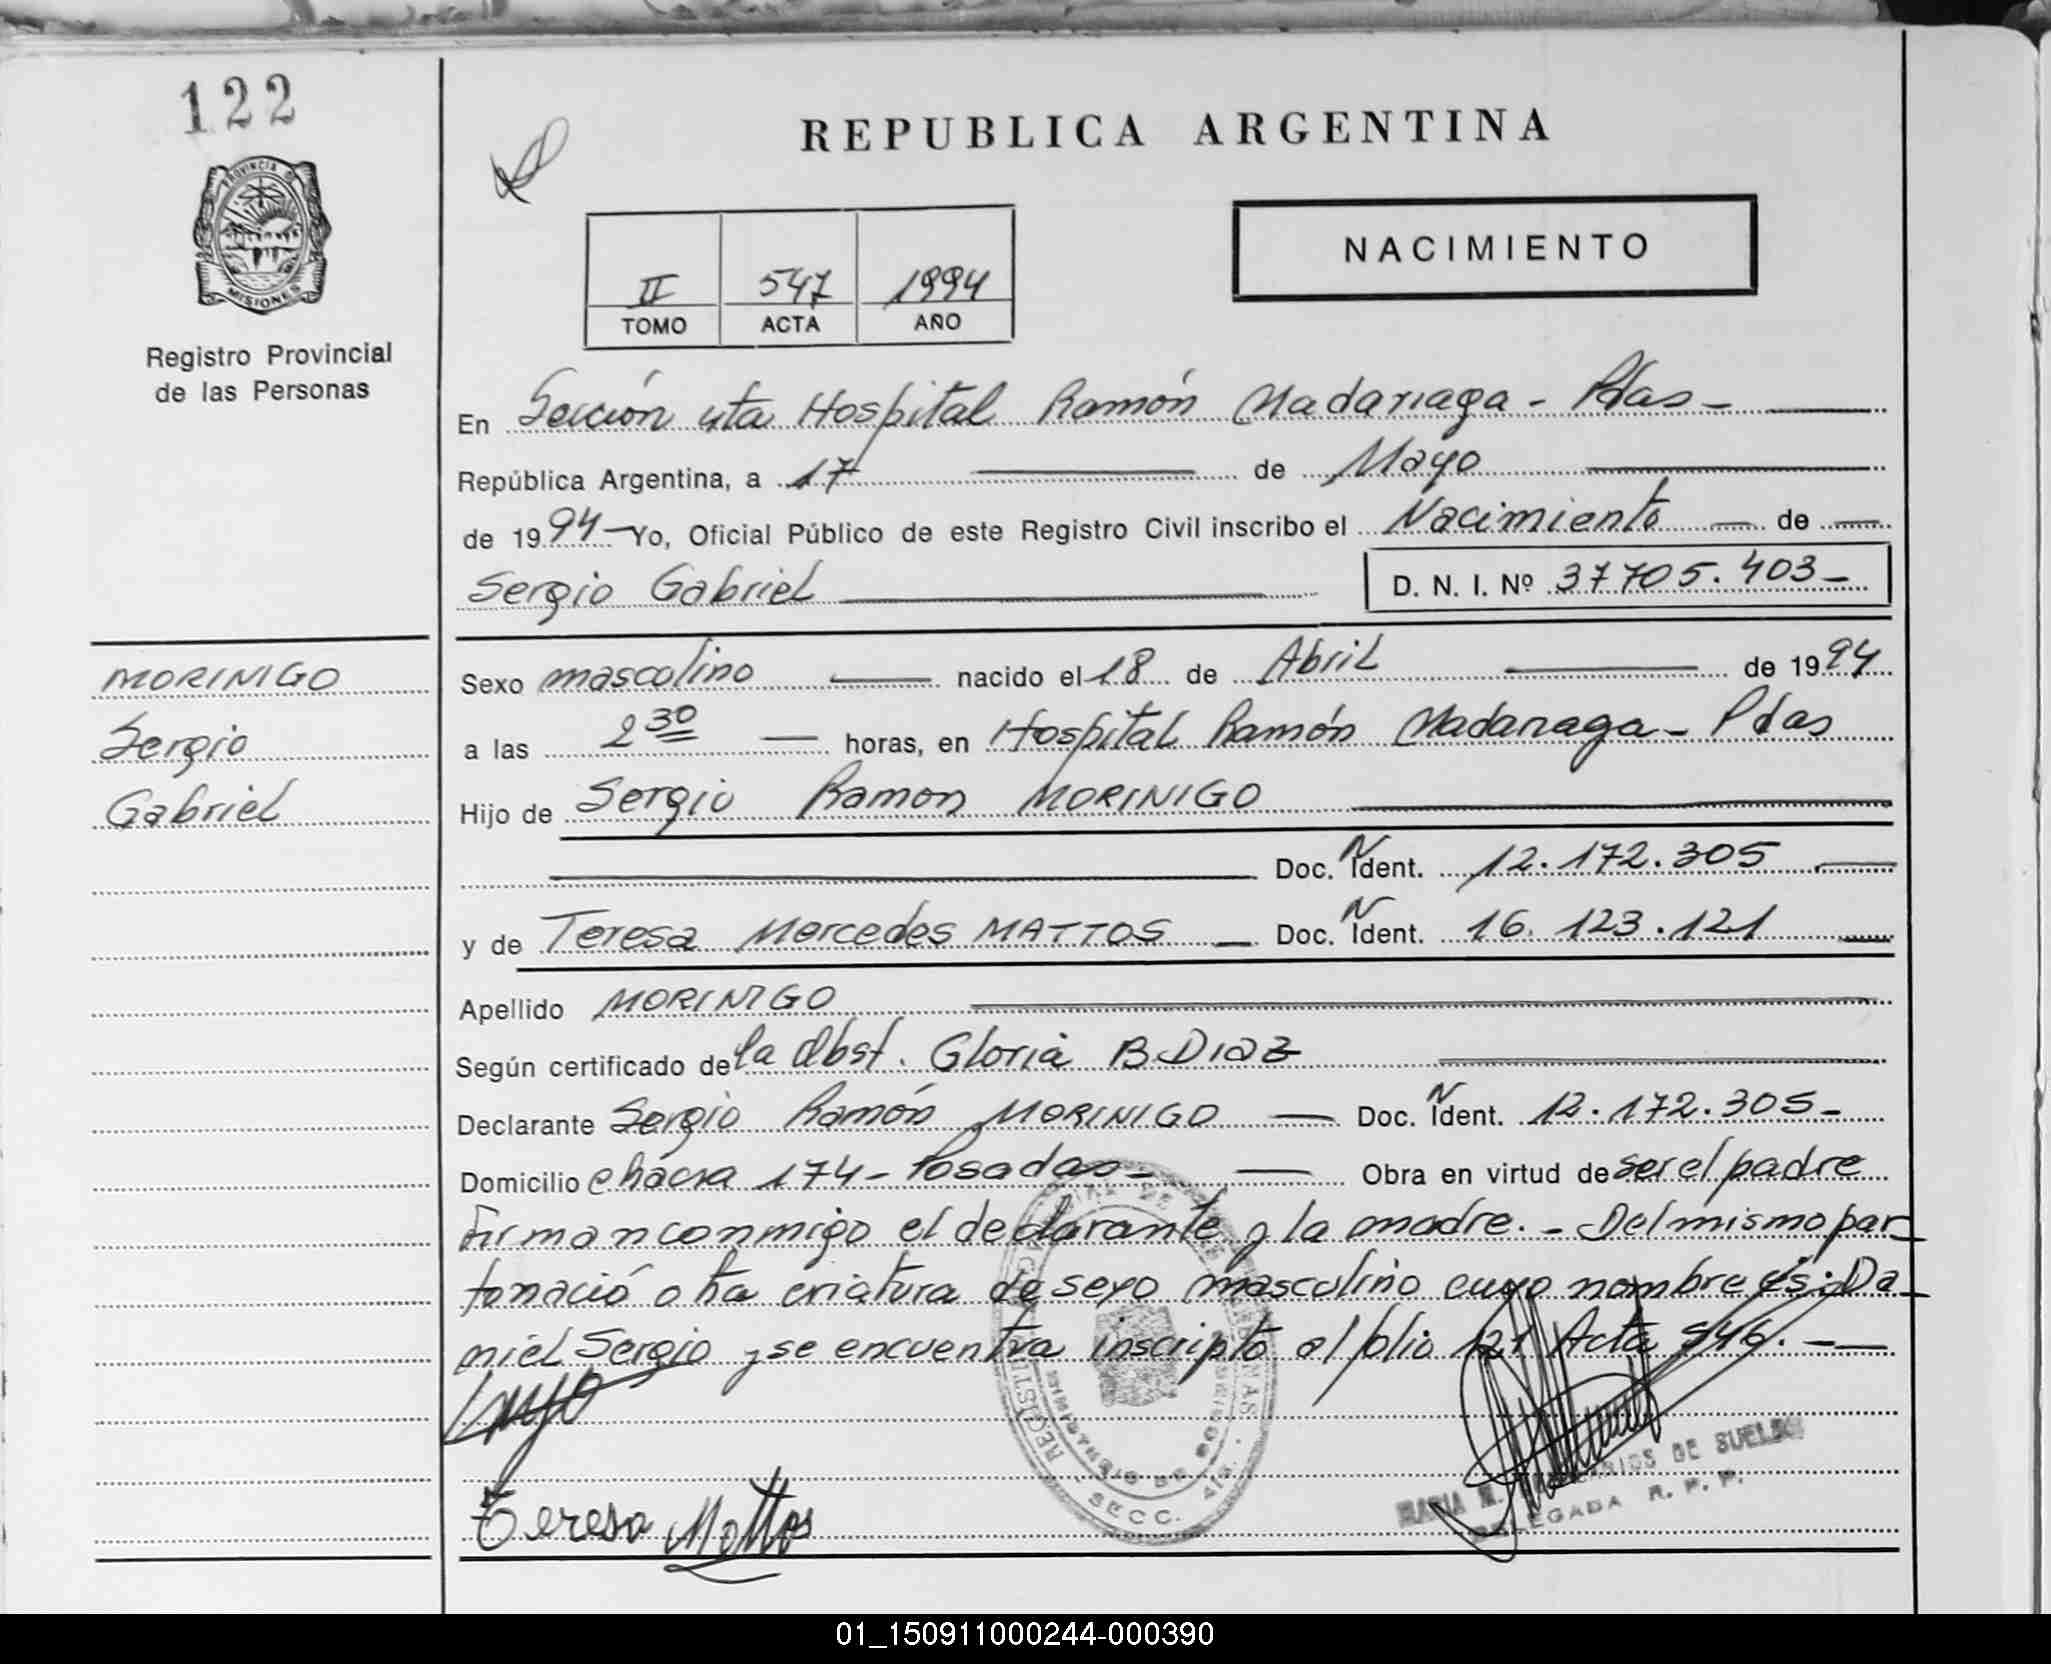 122
REPUBLICA ARGENTINA
PROVINCIA DE
MISIONES
Registro Provincial
de las Personas
II 547 1994
TOMO ACTA AÑO
NACIMIENTO
En Sección 4ta Hospital Ramón Madariaga - Pdas -
República Argentina, a 17 de Mayo
de 1994 Yo, Oficial Público de este Registro Civil inscribo el Nacimiento de
Sergio Gabriel D. N. I. Nº 37705.403-
MORINIGO
Sergio
Gabriel
Sexo mascolino nacido el 18 de Abril de 1994
a las 2 30 horas, en Hospital Ramón Madariaga - Pdas
Hijo de Sergio Ramon MORINIGO
Doc. N Ident. 12.172.305
y de Teresa Mercedes MATTOS Doc. N Ident. 16.123.121
Apellido MORINIGO
Según certificado de la Obst. Gloria B. Diaz
Declarante Sergio Ramón MORINIGO Doc. N Ident. 12.172.305-
Domicilio chacra 174 - Posadas - Obra en virtud de ser el padre
Firman conmigo el declarante y la madre. - Del mismo par
to nació otra criatura de sexo masculino cuyo nombre es: Da
niel Sergio y se encuentra inscripto al folio 121 Acta 546. -
Teresa Mattos
SECC. 4ta.
MARIA DE SUELDO
DELEGADA R. P. P.
01_150911000244-000390